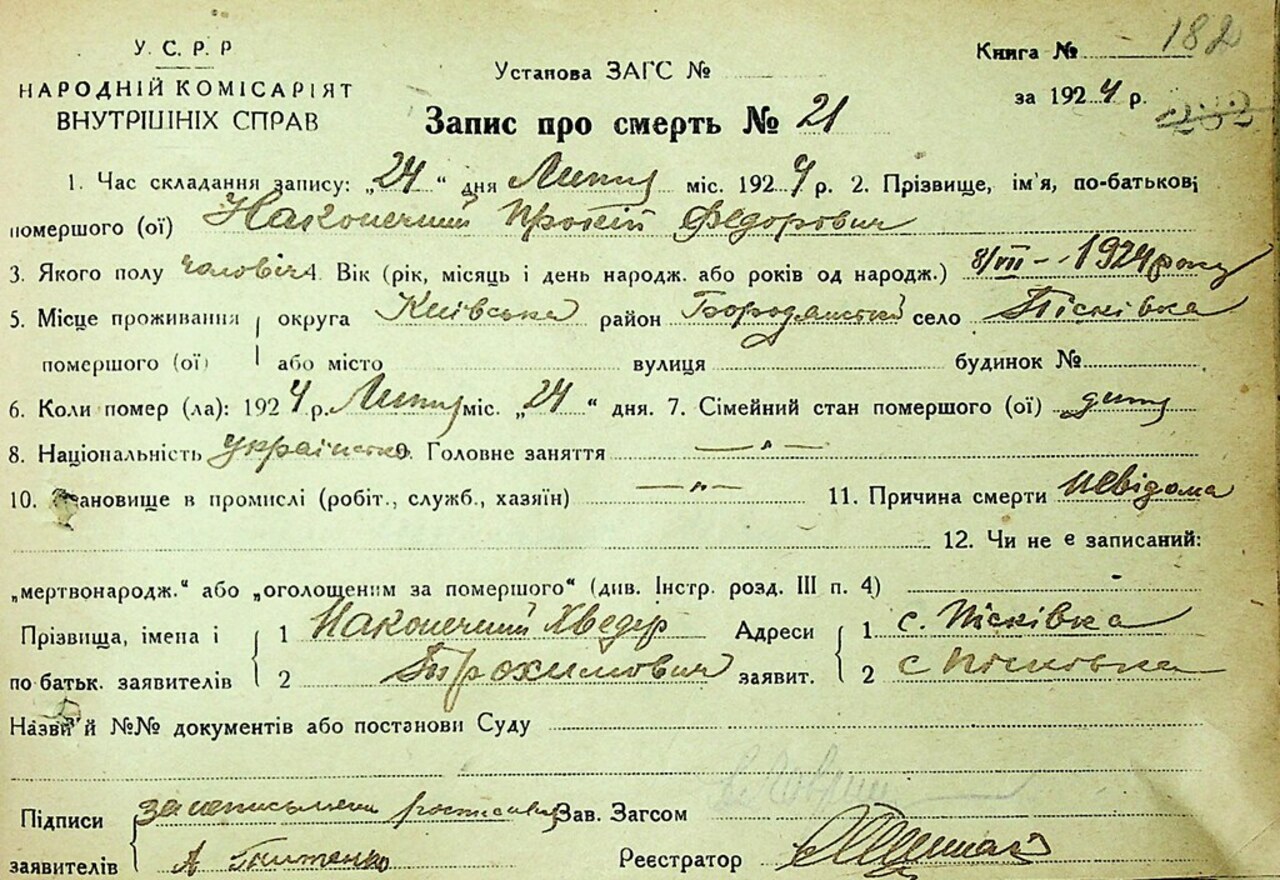 У. С. Р. Р
НАРОДНІЙ КОМІСАРІЯТ
ВНУТРІШНІХ СПРАВ
Установа ЗАГС №
Книга № 182
за 1924 р. 232
Запис про смерть № 21
1. Час складання запису: „24“ дня Липня міс. 1924 р. 2. Прізвище, ім'я, по-батькові
помершого (ої) Наконечний Прокіп Федорович
3. Якого полу чоловіч 4. Вік (рік, місяць і день народж. або років од народж.) 8/VII - 1924 року
5. Місце проживання округа Київська район Бородянський село Пісківка
помершого (ої) або місто вулиця будинок №
6. Коли помер (ла): 1924 р. Липня міс. „24“ дня. 7. Сімейний стан помершого (ої) дитя
8. Національність українська 9. Головне заняття — „ —
10. Становище в промислі (робіт., служб., хазяїн) — „ — 11. Причина смерти невідома
12. Чи не є записаний:
„мертвонародж.“ або „оголошеним за помершого“ (див. Інстр. розд. III п. 4) —
Прізвища, імена і 1 Наконечний Хведір Адреси 1 с. Пісківка
по батьк. заявителів 2 Трохимович заявит. 2 с Пісковка
Назви й №№ документів або постанови Суду
Підписи Зав. Загсом
заявителів А Реєстратор